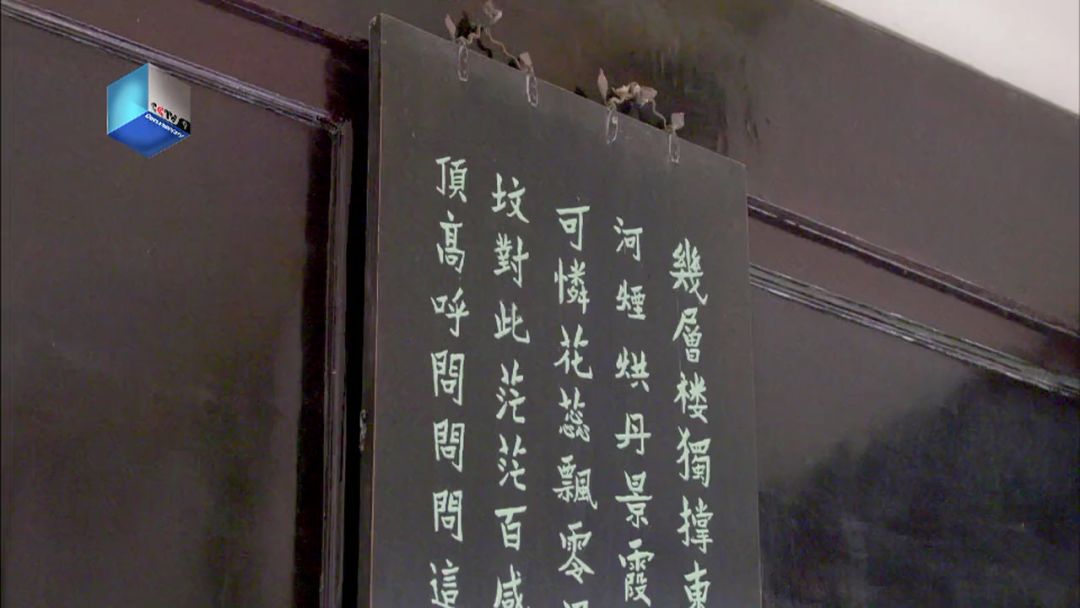 幾層楼獨撐東
河煙烘丹景霞
可憐花蕊飄零
坟對此茫茫百感
頂高呼問問問這
CCTV 9
Documentary